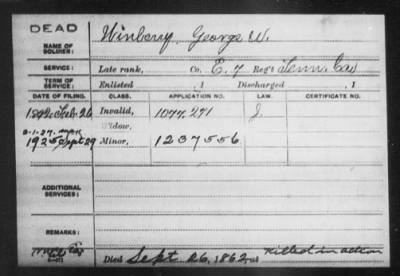 DEAD
NAME OF SOLDIER: Winberry, George W.
SERVICE: Late rank, Co. E. 7 Reg't Tenn. Cav
TERM OF SERVICE: Enlisted , 1 Discharged , 1
DATE OF FILING. CLASS. APPLICATION NO. LAW. CERTIFICATE NO.
1892 Feb. 26 Invalid, 1077,271 J.
Widow,
1925 Sept 29 Minor, 1237556
ADDITIONAL SERVICES:
REMARKS:
Died Sept 26, 1862, at Killed in action